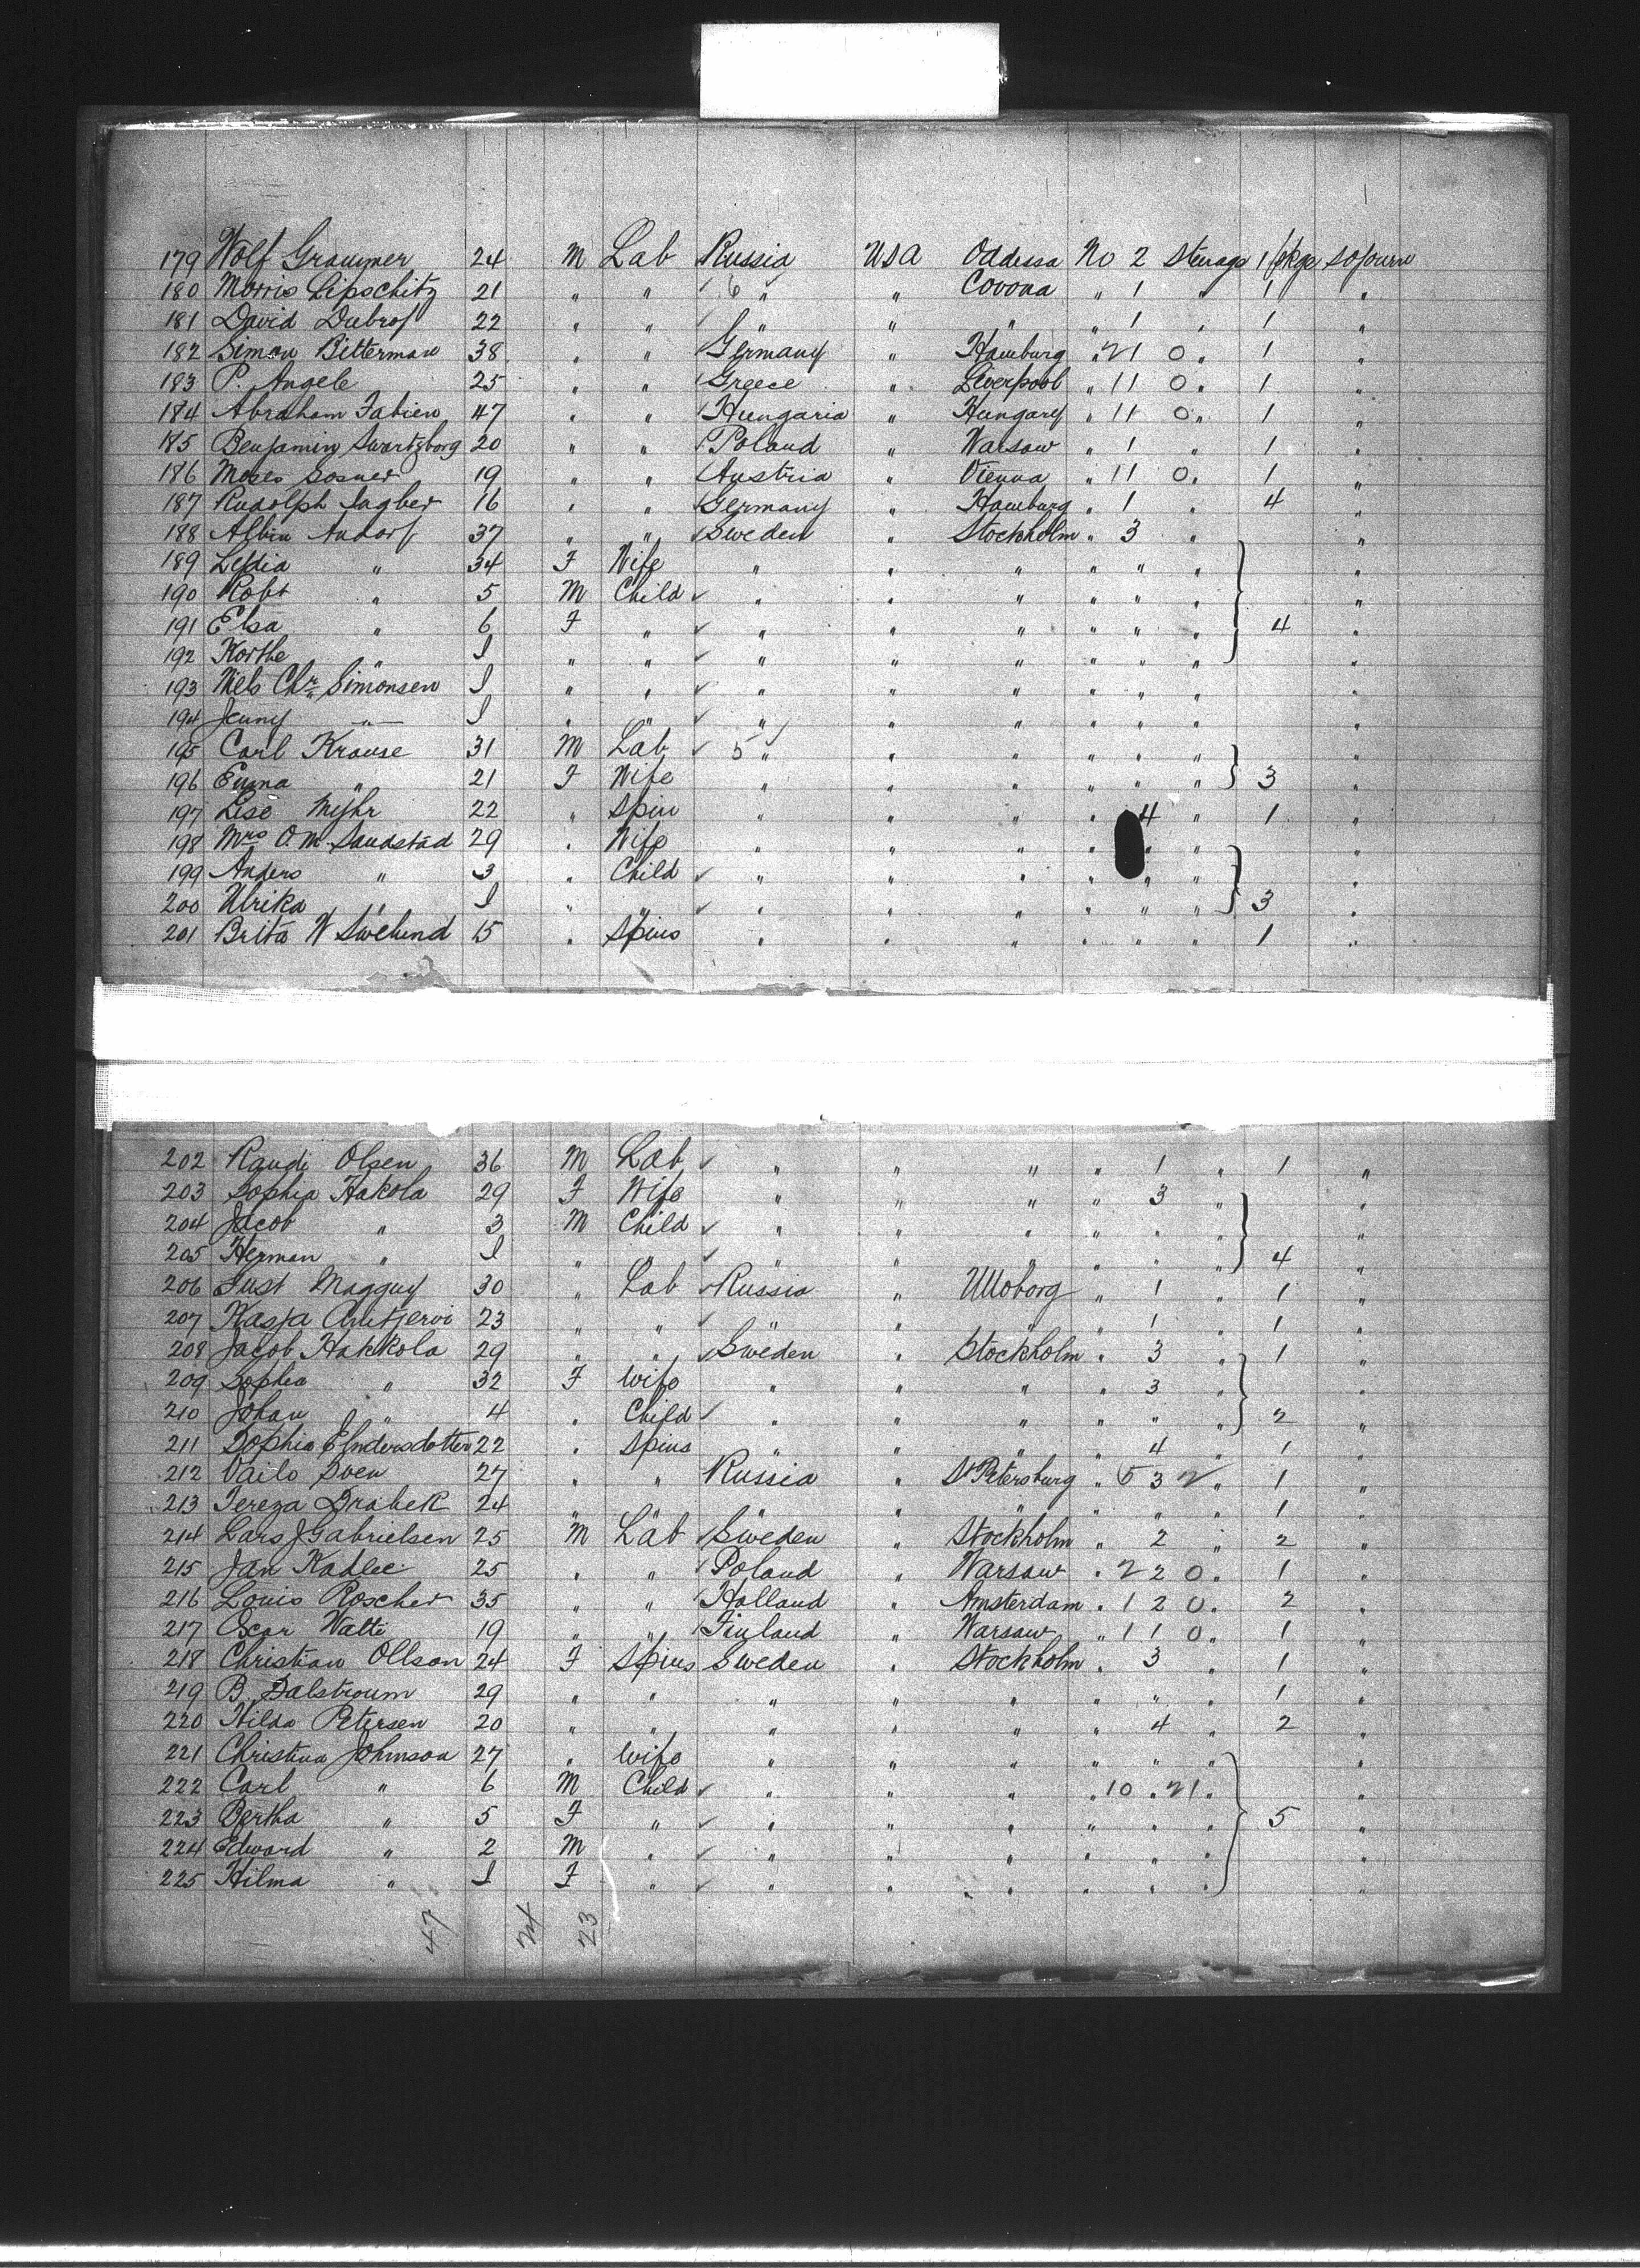 179 Wolf Graumer 24 M Lab Russia USA Oddessa No 2 Sterage 1 pkge sojourn
180 Morris Lipschitz 21 " " 6 " " Covona " 1 " 1 "
181 David Dubrof 22 " " " " " " 1 " 1 "
182 Simon Bitterman 38 " " Germany " Hamburg " 21 0 " 1 "
183 P. Angele 25 " " Greece " Liverpool " 11 0 " 1 "
184 Abraham Fabien 47 " " Hungaria " Hungary " 11 0 " 1 "
185 Benjamin Swartzborg 20 " " Poland " Warsaw " 1 " 1 "
186 Moses Sosner 19 " " Austria " Vienna " 11 0 " 1 "
187 Rudolph 16 " " Germany " Hamburg " 1 " 4 "
188 Albin Andorf 37 " " Sweden " Stockholm " 3 " "
189 Lydia " 34 F Wife " " " " " " "
190 Robt " 5 M Child " " " " " " "
191 Elsa " 6 F " " " " " " " 4 "
192 Korthe " I " " " " " " " " "
193 Niels Chr Simonsen I " " " " " " " " "
194 Jenny " I " " " " " " " " "
195 Carl Krause 31 M Lab 5 " " " " " " "
196 Emma " 21 F Wife " " " " " " 3 "
197 Lise Myhr 22 " Spin " " " " 4 " 1 "
198 Mrs O. M. Sandstad 29 " Wife " " " " " " "
199 Anders " 3 " Child " " " " " " "
200 Ulrika " I " " " " " " " " 3 "
201 Brita W Swelund 15 " Spins " " " " " " 1 "
202 Raudi Olsen 36 M Lab " " " " 1 " 1 "
203 Sophia Hakola 29 F Wife " " " " 3 " "
204 Jacob " 3 M Child " " " " " " "
205 Herman " I " " " " " " " " 4 "
206 Just Magguy 30 " Lab Russia " Ulloborg " 1 " 1 "
207 Kasja 23 " " " " " " 1 " 1 "
208 Jacob Hakkola 29 " " Sweden " Stockholm " 3 " 1 "
209 Sophia " 32 F Wife " " " " 3 " "
210 Johan " 4 " Child " " " " " " 2 "
211 Sophia Endersdotter 22 " Spins " " " " 4 " 1 "
212 Vailo Sven 27 " " Russia " St Petersburg " 5 3 2 " 1 "
213 Tereza Drabek 24 " " " " " " " " 1 "
214 Lars J Gabrielsen 25 M Lab Sweden " Stockholm " 2 " 2 "
215 Jan Kadlec 25 " " Poland " Warsaw " 2 2 0 " 1 "
216 Louis Roscher 35 " " Holland " Amsterdam " 1 2 0 " 2 "
217 Oscar Watti 19 " " Finland " Warsaw " 1 1 0 " 1 "
218 Christian Ollson 24 F Spins Sweden " Stockholm " 3 " 1 "
219 B. Dalstroum 29 " " " " " " " " 1 "
220 Hilda Petersen 20 " " " " " " 4 " 2 "
221 Christina Johnson 27 " Wife " " " " " " "
222 Carl " 6 M Child " " " " 10 " 21 " "
223 Bertha " 5 F " " " " " " " 5 "
224 Edward " 2 M " " " " " " " "
225 Hilma " I F " " " " " " " "
47 24 23